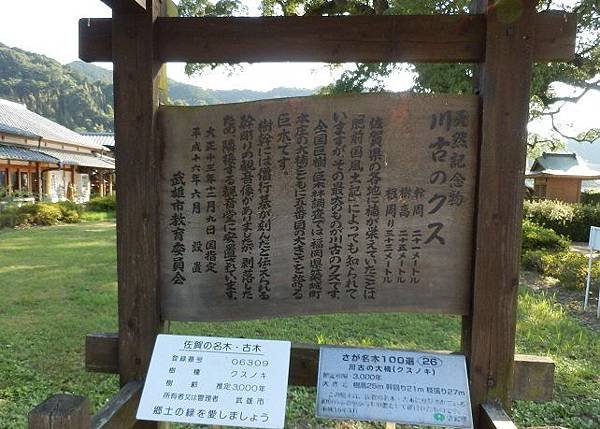 天然記念物
川古のクス
幹周 二十一メートル
樹高 二十五メートル
根周り 三十三メートル
佐賀県の各地に楠が栄えていたことは
「肥前国風土記」によっても知られて
いますが、その最大のものが川古のクスです。
全国巨樹・巨木林調査では福岡県築城町
本庄の大楠とともに五番目の大きさを誇る
巨木です。
樹幹には僧行基が刻んだと伝えられる
幹彫りの観音像がありましたが剥落した
ため、隣接する観音堂に安置されています。
大正十三年十二月九日 国指定
平成十六年六月 設置
武雄市教育委員会
佐賀の名木・古木
登録番号 06309
樹種 クスノキ
樹齢 推定3,000年
所有者又は管理者 武雄市
郷土の緑を愛しましょう
さが名木100選 26
川古の大楠(クスノキ)
推定樹齢 3,000年
大きさ 樹高25m 幹回り21m 枝張り27m